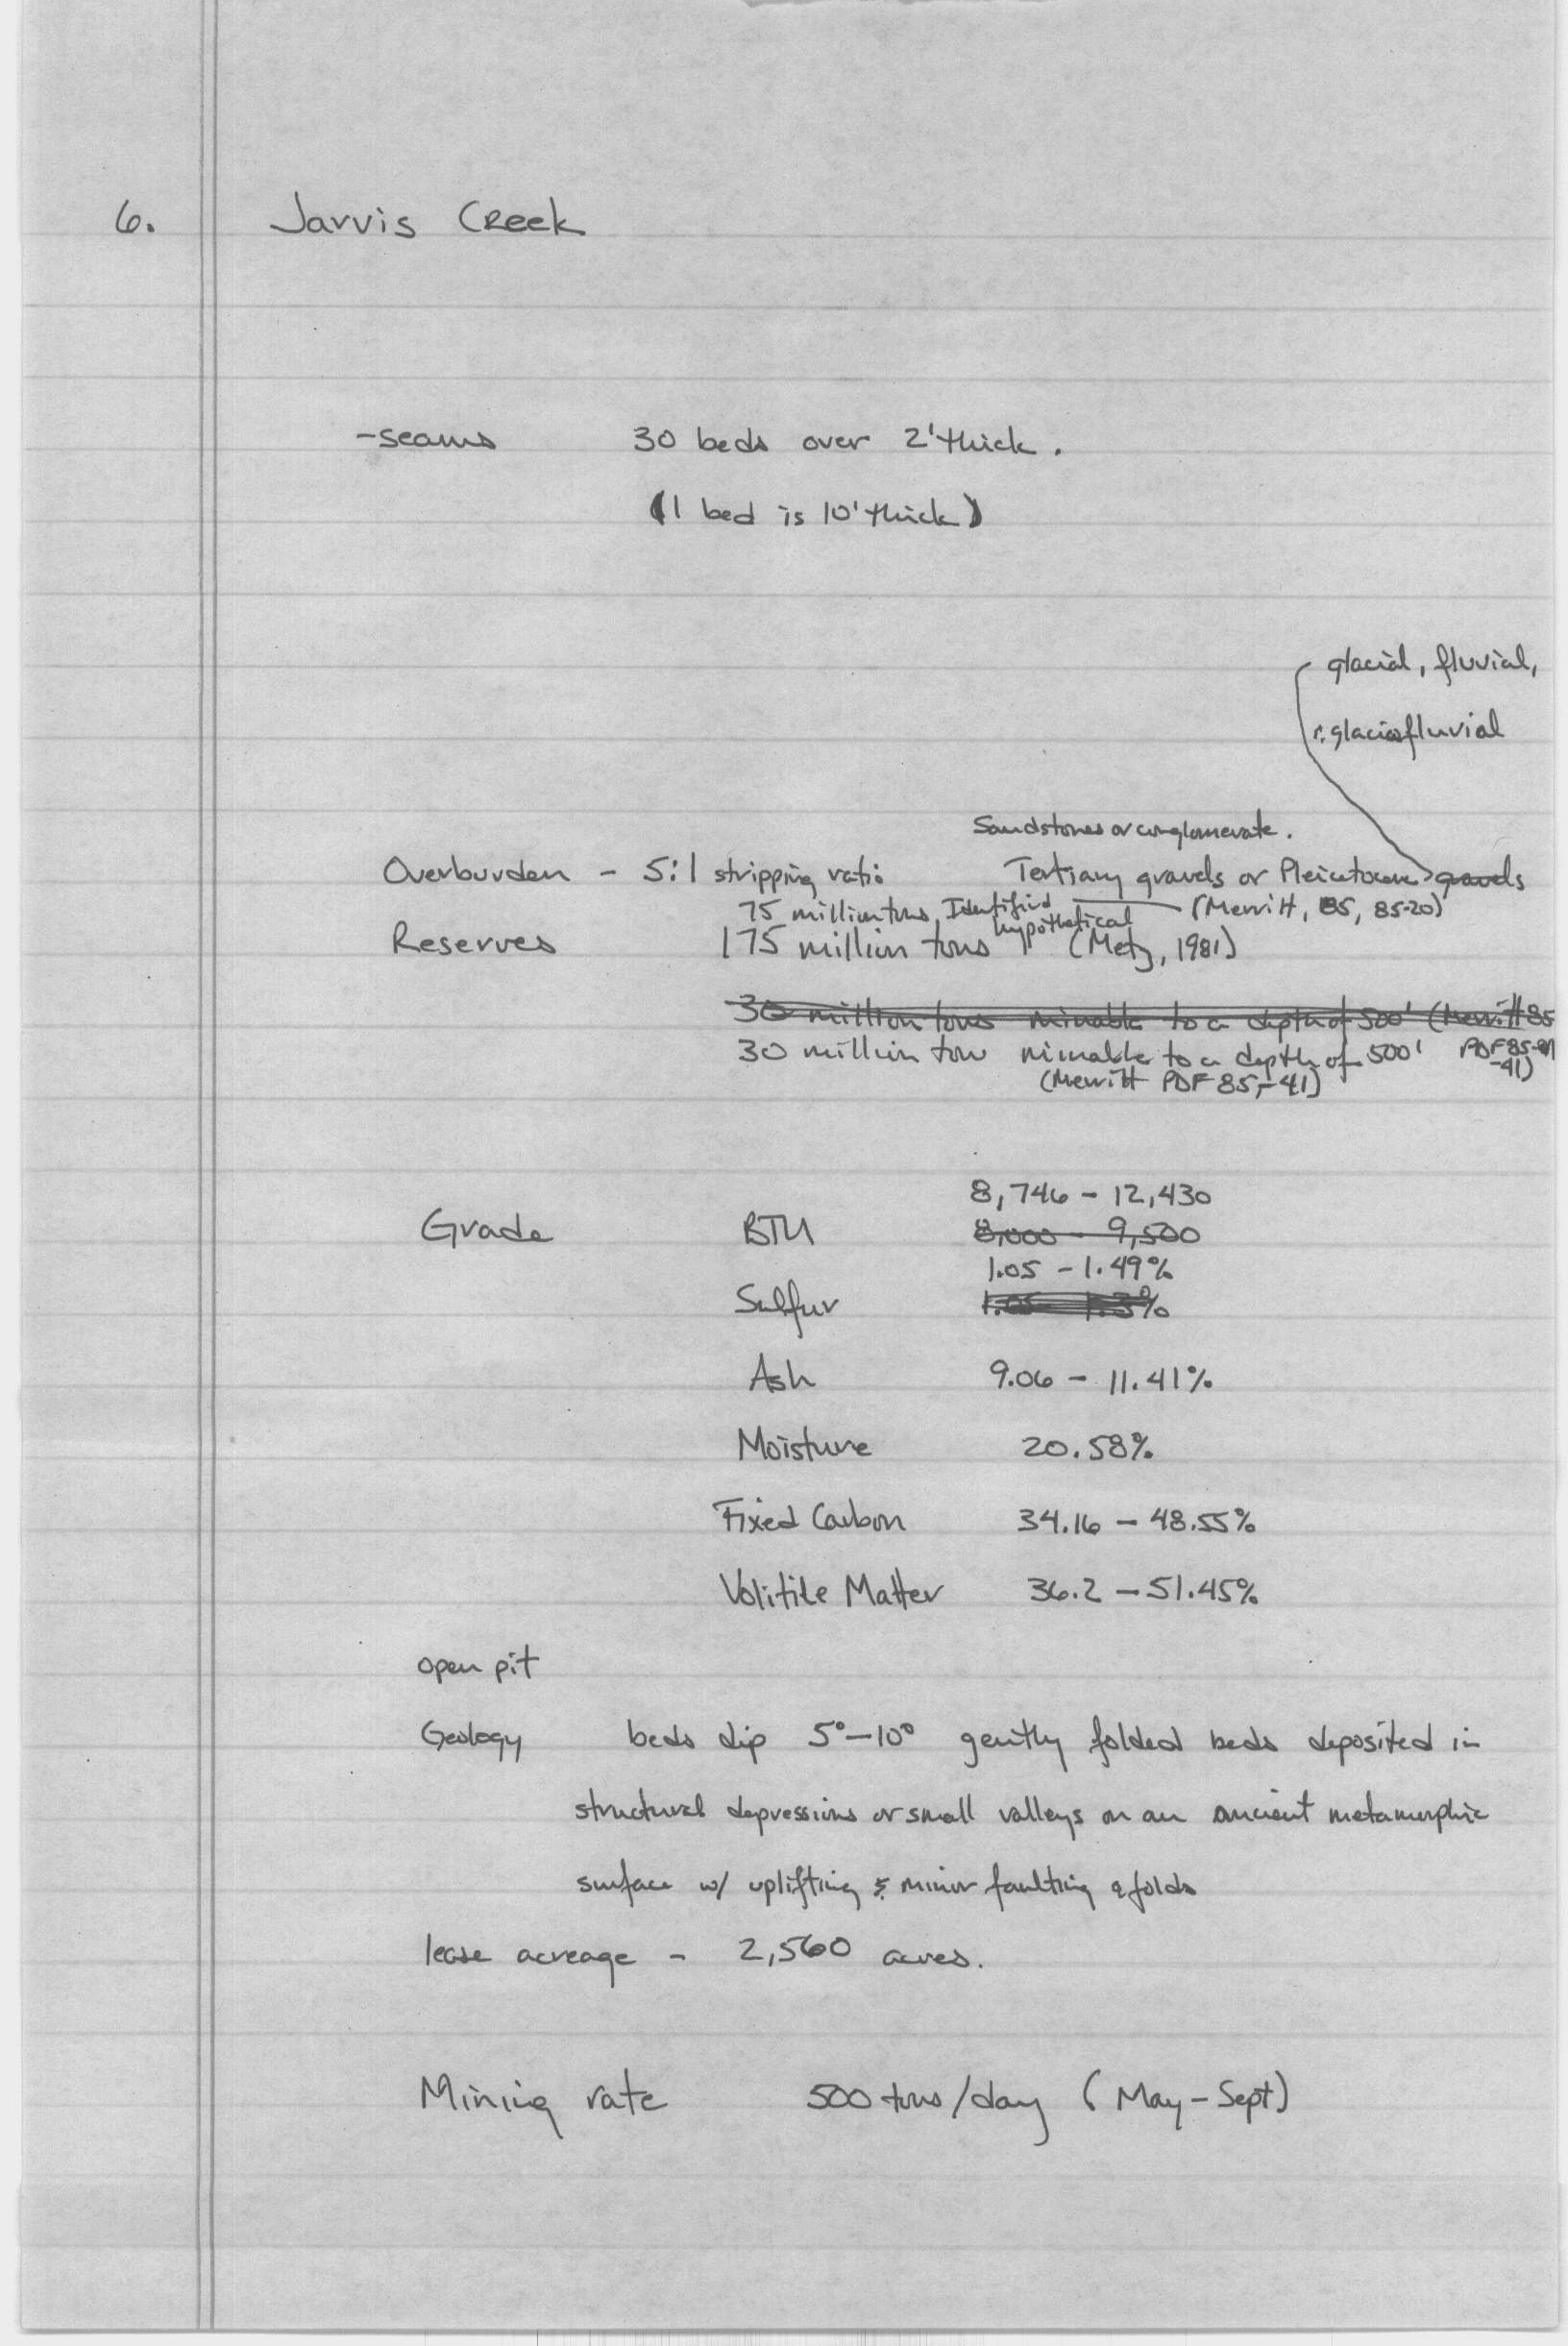 6. Jarvis Creek
-seams 30 beds over 2' thick.
(1 bed is 10' thick)
glacial, fluvial,
glaciofluvial
Sandstones or conglomerate.
Overburden - 5:1 stripping ratio Tertiary gravels or Pleistocene gravels
75 million tons Identified (Merritt, 85, 85-20)
hypothetical
Reserves 175 million tons (Metz, 1981)
30 million tons minable to a depth of 500' (Merritt 85
30 million tons minable to a depth of 500' PDF 85-
-41)
(Merritt PDF 85-41)
8,746 - 12,430
Grade BTU 8,000 - 9,500
1.05 - 1.49%
Sulfur 1.05 - 1.3%
Ash 9.06 - 11.41%
Moisture 20.58%
Fixed Carbon 34.16 - 48.55%
Volitile Matter 36.2 - 51.45%
open pit
Geology beds dip 5° - 10° gently folded beds deposited in
structural depressions or small valleys on an ancient metamorphic
surface w/ uplifting & minor faulting & folds
lease acreage - 2,560 acres.
Mining rate 500 tons/day (May - Sept)